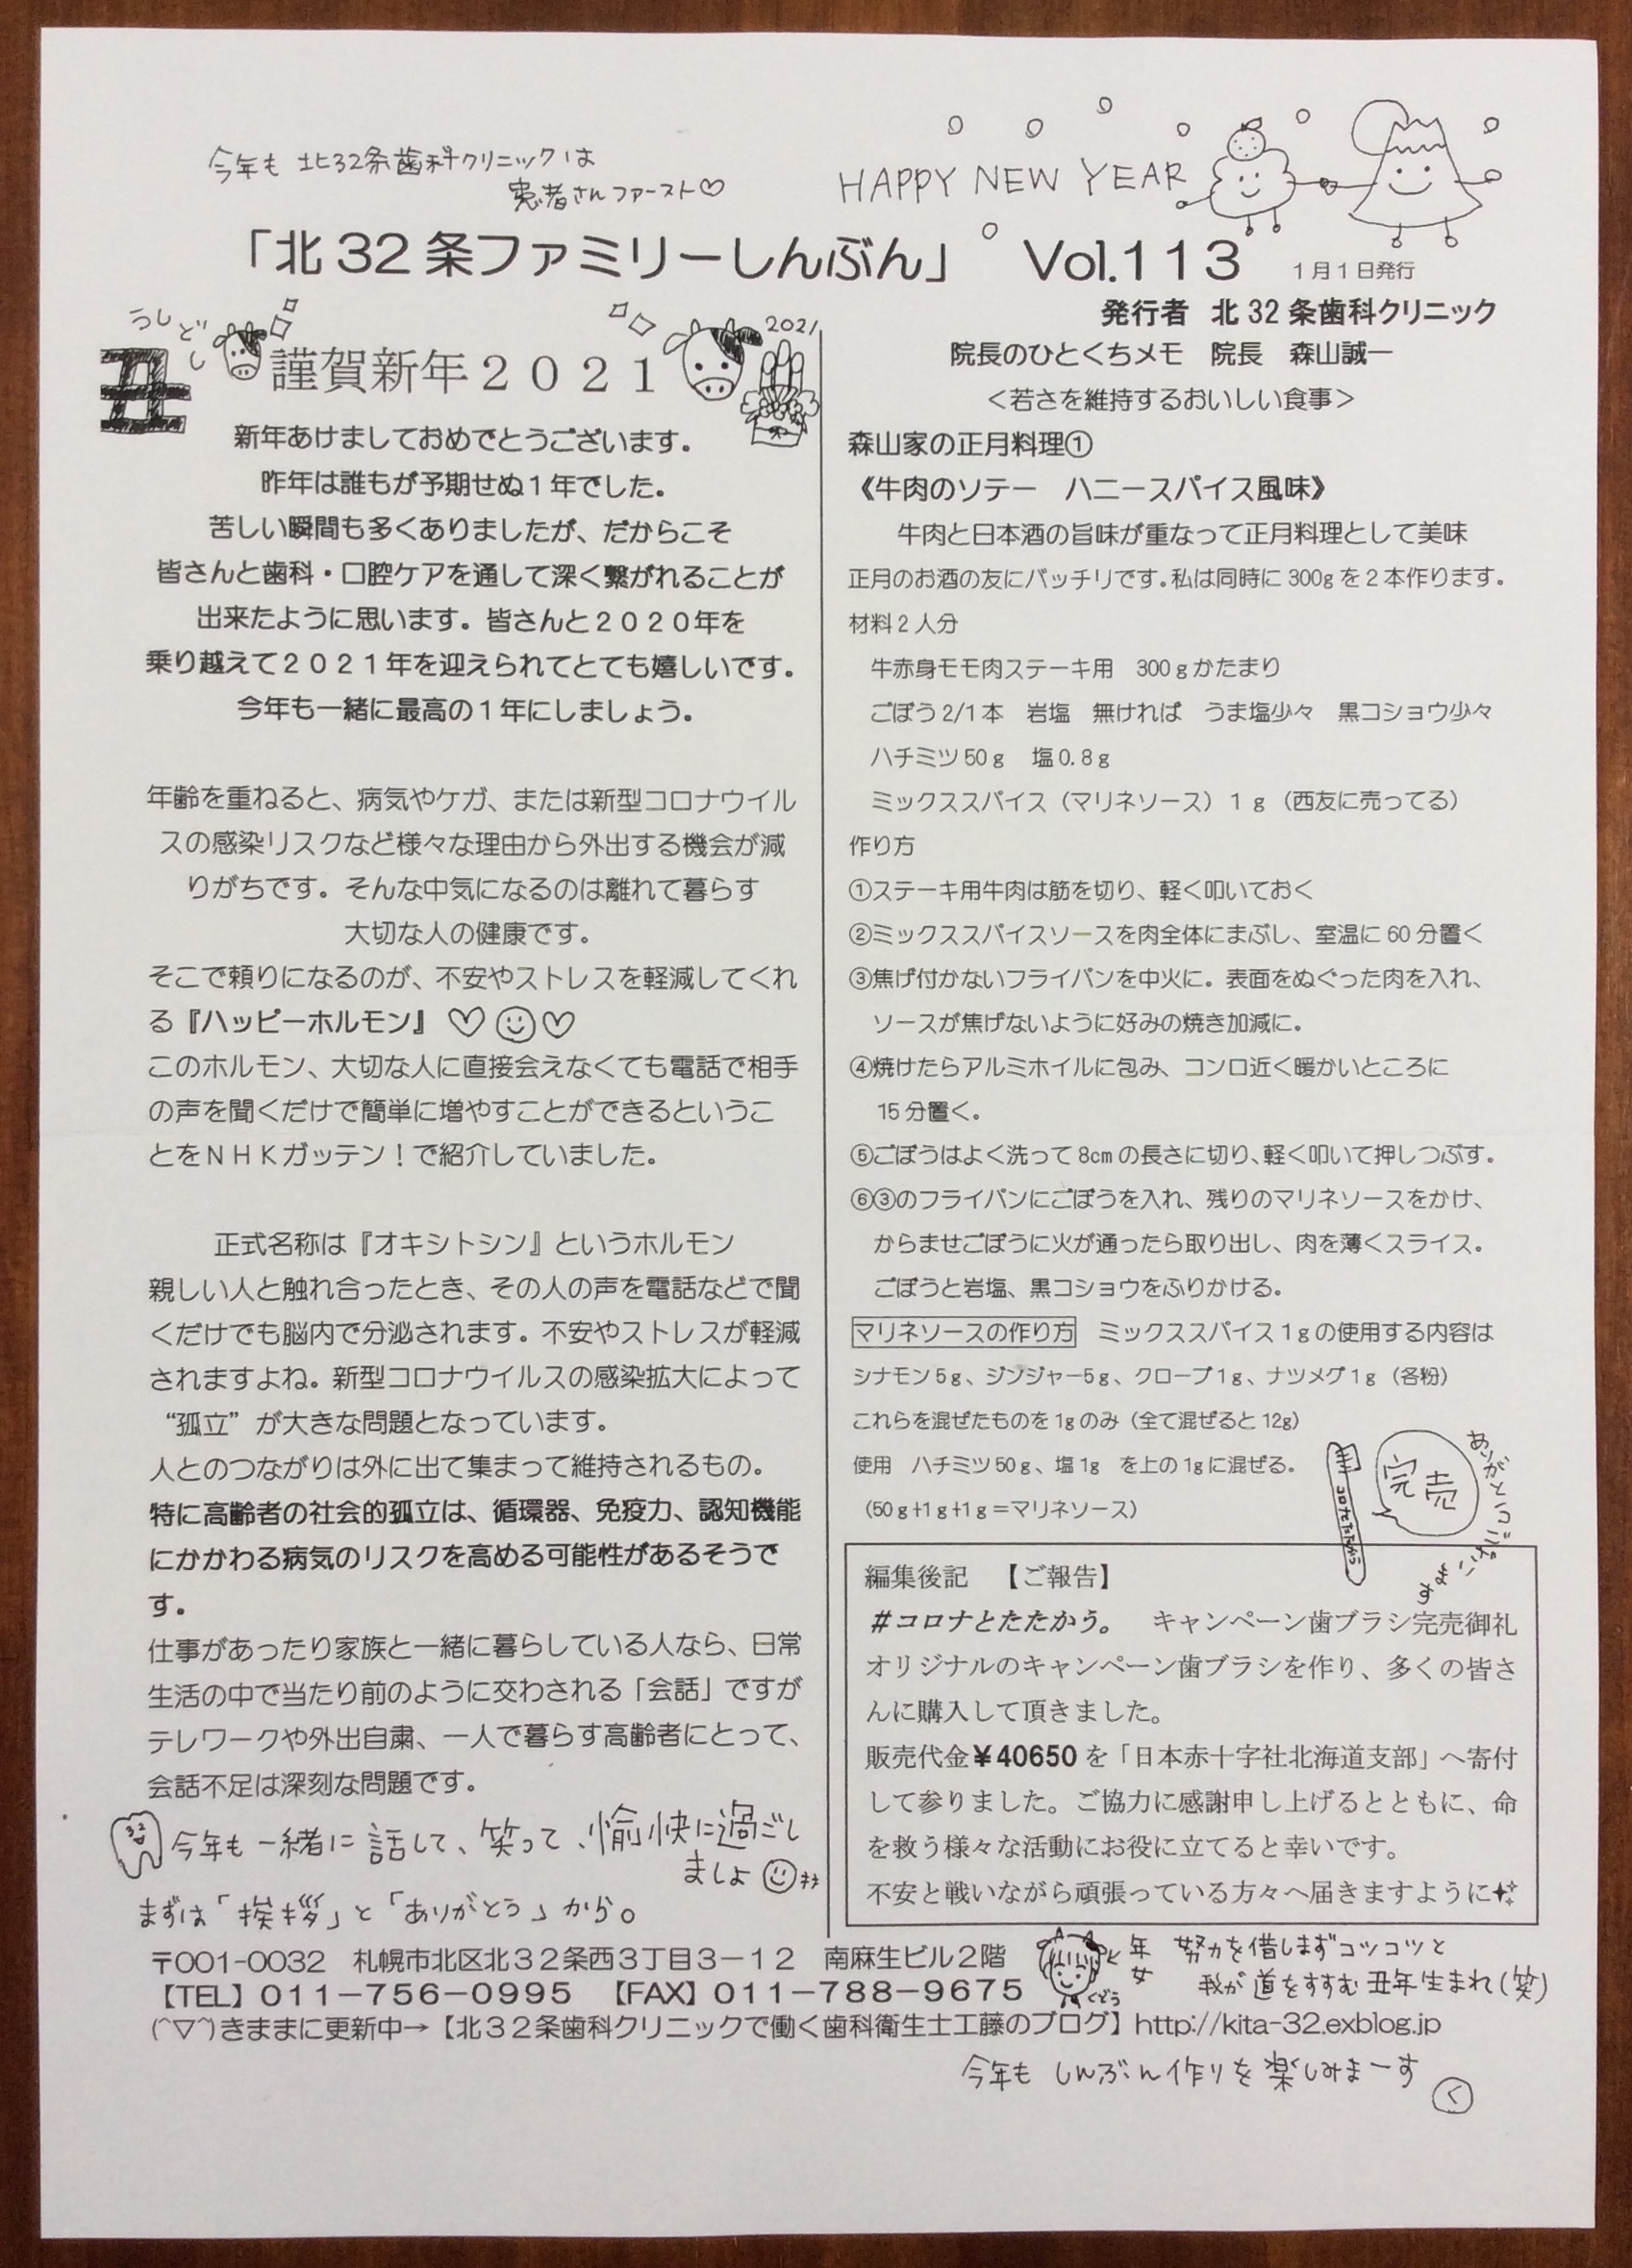 今年も 北32条歯科クリニックは
患者さんファースト♡
HAPPY NEW YEAR
「北32条ファミリーしんぶん」 Vol.113 1月1日発行
うしどし
丑
謹賀新年２０２１
2021
新年あけましておめでとうございます。
昨年は誰もが予期せぬ1年でした。
苦しい瞬間も多くありましたが、だからこそ
皆さんと歯科・口腔ケアを通して深く繋がれることが
出来たように思います。皆さんと２０２０年を
乗り越えて２０２１年を迎えられてとても嬉しいです。
今年も一緒に最高の1年にしましょう。
年齢を重ねると、病気やケガ、または新型コロナウイル
スの感染リスクなど様々な理由から外出する機会が減
りがちです。そんな中気になるのは離れて暮らす
大切な人の健康です。
そこで頼りになるのが、不安やストレスを軽減してくれ
る『ハッピーホルモン』♡☺♡
このホルモン、大切な人に直接会えなくても電話で相手
の声を聞くだけで簡単に増やすことができるというこ
とをＮＨＫガッテン！で紹介していました。
正式名称は『オキシトシン』というホルモン
親しい人と触れ合ったとき、その人の声を電話などで聞
くだけでも脳内で分泌されます。不安やストレスが軽減
されますよね。新型コロナウイルスの感染拡大によって
“孤立”が大きな問題となっています。
人とのつながりは外に出て集まって維持されるもの。
特に高齢者の社会的孤立は、循環器、免疫力、認知機能
にかかわる病気のリスクを高める可能性があるそうで
す。
仕事があったり家族と一緒に暮らしている人なら、日常
生活の中で当たり前のように交わされる「会話」ですが
テレワークや外出自粛、一人で暮らす高齢者にとって、
会話不足は深刻な問題です。
32
今年も一緒に話して、笑って、愉快に過ごし
ましょ☺
まずは「挨拶」と「ありがとう」から。
発行者 北32条歯科クリニック
院長のひとくちメモ 院長 森山誠一
＜若さを維持するおいしい食事＞
森山家の正月料理①
《牛肉のソテー ハニースパイス風味》
牛肉と日本酒の旨味が重なって正月料理として美味
正月のお酒の友にバッチリです。私は同時に300gを2本作ります。
材料2人分
牛赤身モモ肉ステーキ用 300gかたまり
ごぼう2/1本 岩塩 無ければ うま塩少々 黒コショウ少々
ハチミツ50g 塩0.8g
ミックススパイス（マリネソース）1g（西友に売ってる）
作り方
①ステーキ用牛肉は筋を切り、軽く叩いておく
②ミックススパイスソースを肉全体にまぶし、室温に60分置く
③焦げ付かないフライパンを中火に。表面をぬぐった肉を入れ、
ソースが焦げないように好みの焼き加減に。
④焼けたらアルミホイルに包み、コンロ近く暖かいところに
15分置く。
⑤ごぼうはよく洗って8cmの長さに切り、軽く叩いて押しつぶす。
⑥③のフライパンにごぼうを入れ、残りのマリネソースをかけ、
からませごぼうに火が通ったら取り出し、肉を薄くスライス。
ごぼうと岩塩、黒コショウをふりかける。
マリネソースの作り方 ミックススパイス1gの使用する内容は
シナモン5g、ジンジャー5g、クローブ1g、ナツメグ1g（各粉）
これらを混ぜたものを1gのみ（全て混ぜると12g）
使用 ハチミツ50g、塩1g を上の1gに混ぜる。
（50g+1g+1g＝マリネソース）
完売
ありがとうございます
コロナとたたかう
編集後記 【ご報告】
＃コロナとたたかう。 キャンペーン歯ブラシ完売御礼
オリジナルのキャンペーン歯ブラシを作り、多くの皆さ
んに購入して頂きました。
販売代金￥40650を「日本赤十字社北海道支部」へ寄付
して参りました。ご協力に感謝申し上げるとともに、命
を救う様々な活動にお役に立てると幸いです。
不安と戦いながら頑張っている方々へ届きますように
〒001-0032 札幌市北区北３２条西３丁目３－１２ 南麻生ビル２階
【TEL】０１１－７５６－０９９５ 【FAX】０１１－７８８－９６７５
年女
くどう
努力を惜しまずコツコツと
我が道をすすむ丑年生まれ(笑)
(^▽^)きままに更新中→【北３２条歯科クリニックで働く歯科衛生士工藤のブログ】http://kita-32.exblog.jp
今年も しんぶん作りを楽しみまーす
く